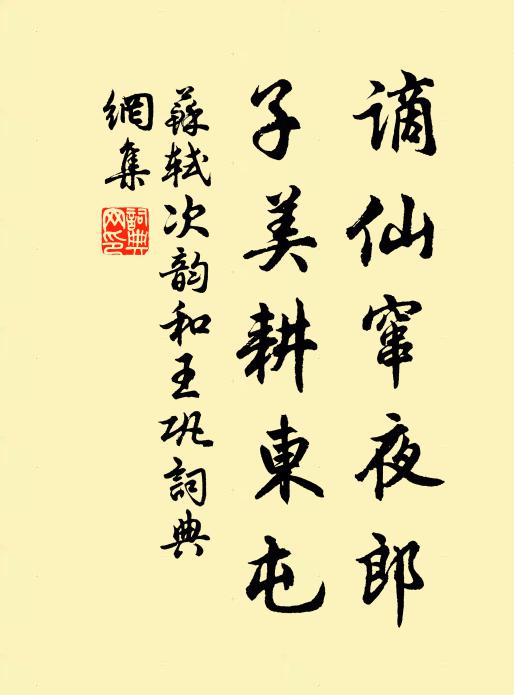 谪仙窜夜郎
子美耕東屯
蘇轼次韵和王巩詞典
網集
詞典網印